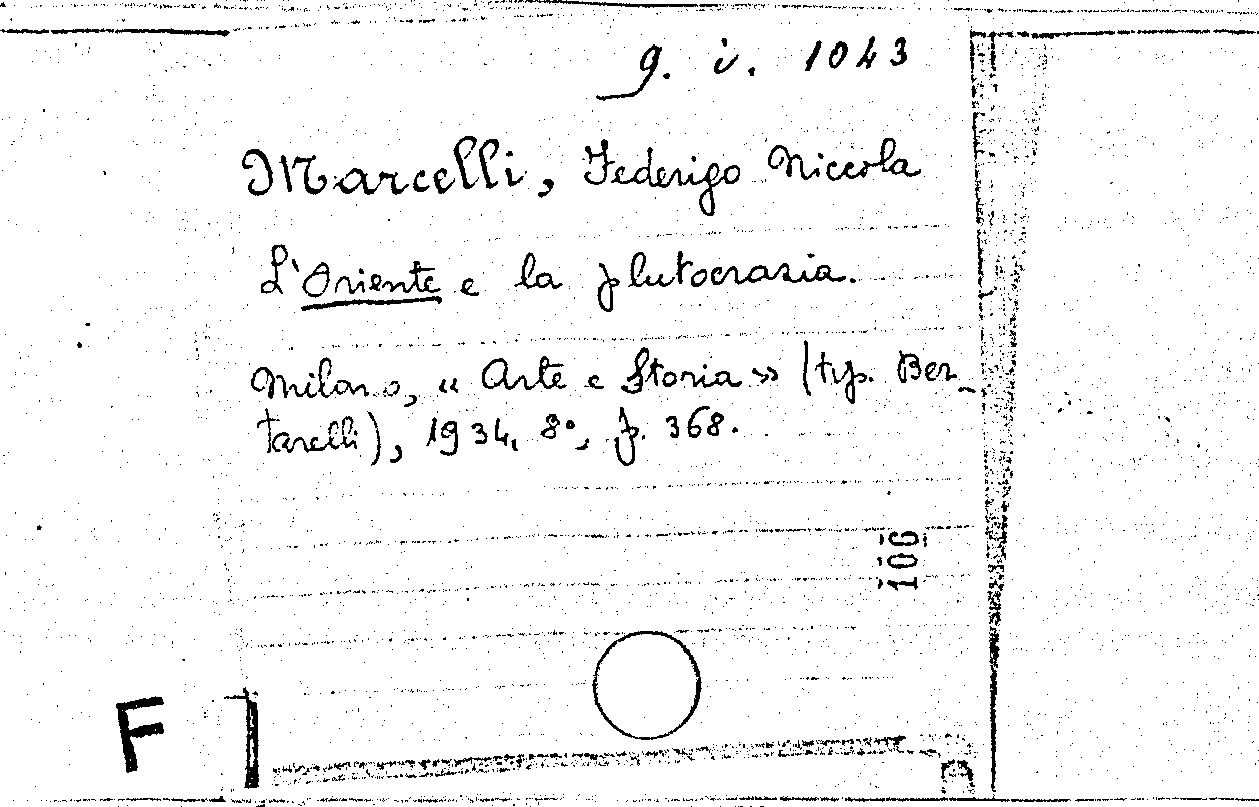 g. i. 1043
Marcelli, Federigo Niccola
L'Oriente e la plutocrazia.
Milano, « Arte e Storia » (typ. Ber_
tarelli), 1934, 8°, p. 368.
106
F